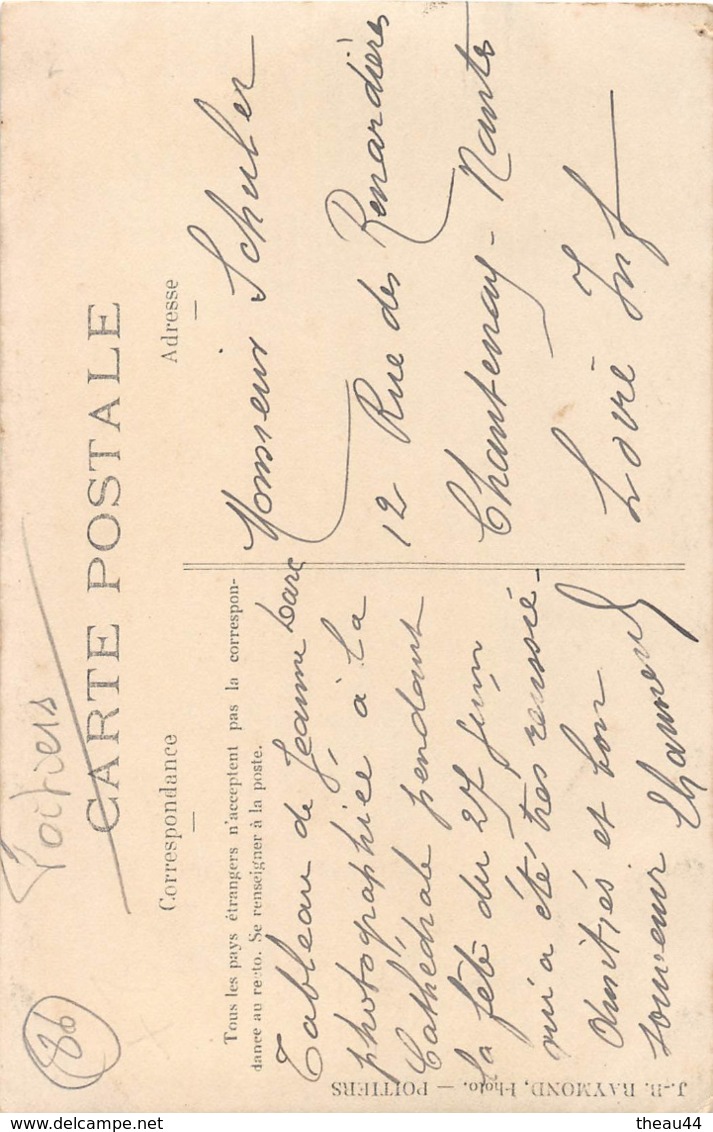 Poitiers
86
CARTE POSTALE
Correspondance
Tous les pays étrangers n'acceptent pas la correspon-
dance au recto. Se renseigner à la poste.
Tableau de Jeanne Darc
photographiée à la
Cathédrale pendant
la fête du 27 juin
qui a été très reussie -
Amitiés et bon
souvenir
Adresse
Monsieur Schuler
12 Rue des Renardières
Chantenay - Nantes
Loire Inf
J.-B. RAYMOND, Photo. — POITIERS
theau44